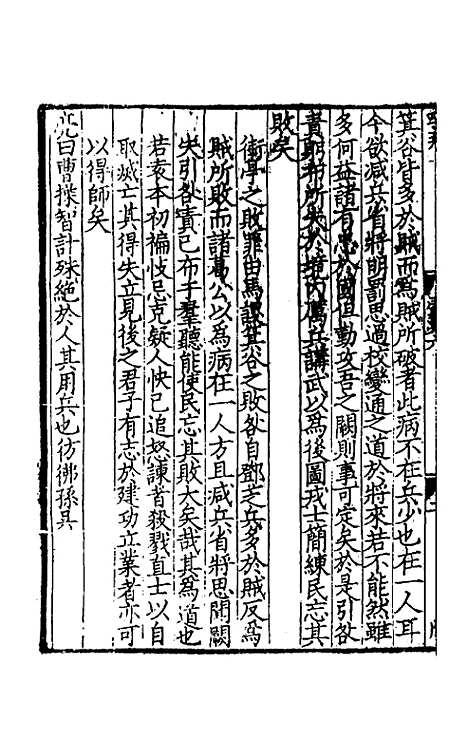 箕谷皆多於賊而爲賊所破者此病不在兵少也在一人耳
今欲减兵省將明罰思過校變通之道於將來若不能然雖
多何益諸有忠於國但勤攻吾之闕則事可定矣於是引咎
責躬布所失於境内厲兵講武以爲後圖戎士簡練民忘其
敗矣
街亭之敗罪由馬謖箕谷之敗咎自鄧芝兵多於賊反爲
賊所敗而諸葛公以爲病在一人方且减兵省將思聞闕
失引咎責己布于羣聽能使民忘其敗大矣哉其爲道也
若袁本初褊忮忌克疑人快己追怒諫者殺戮直士以自
取滅亡其得失立見後之君子有志於建功立業者亦可
以得師矣
亮曰曹操智計殊絶於人其用兵也彷彿孫吳